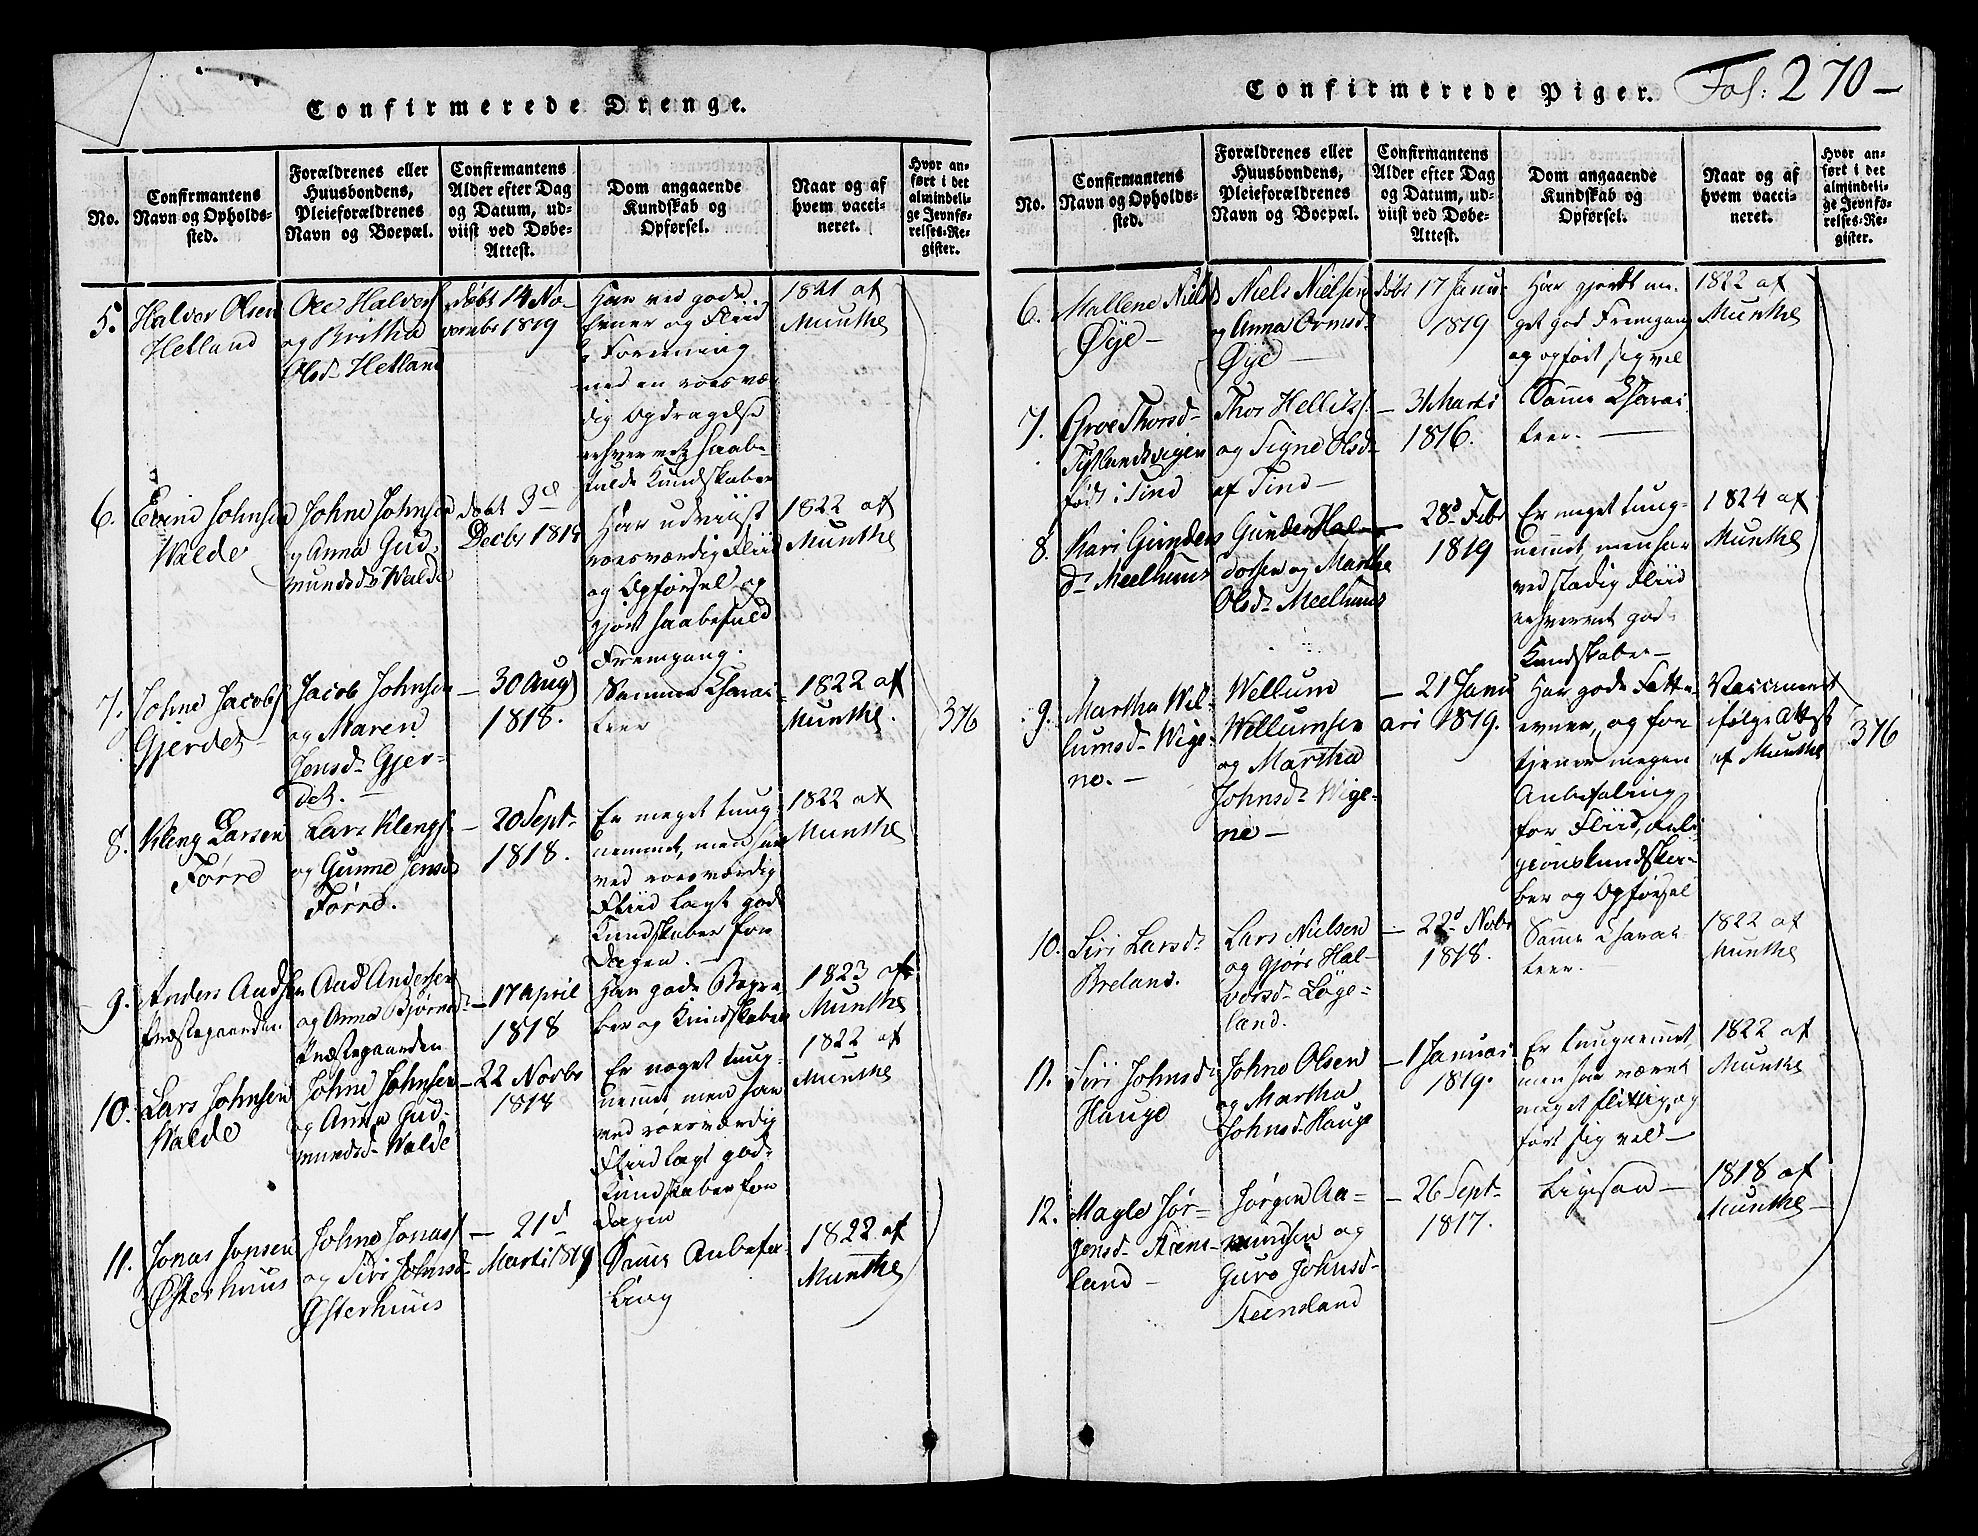 Confirmerede Drenge.
No.
Confirmantens
Navn og Opholds-
sted.
Forældrenes eller
Huusbondens,
Pleieforældrenes
Navn og Boepæl.
Confirmantens
Alder efter Dag
og Datum, ud-
viist ved Døbe-
Attest.
Dom angaaende
Kundskab og
Opførsel.
Naar og af
hvem vacci-
neret.
Hvor an-
ført i det
almindeli-
ge Jevnfø-
relses-Re-
gister.
5.
Halvor Olsen
Hetland
Ole Halvors
og Britha
Olsd Hetland
døbt 14 No-
vembr 1819
Har ved gode
Evner og Fliid
i Forening
med en roesvær-
dig Opdragelse
erhvervet haabe-
fulde Kundskaber
1821 af
Munthe
6.
Evind Johnsen
Walde
Johne Johnsen
og Anna Gud-
mundsd Walde
døbt 3d
Decbr 1819
Har udviist
roesværdig Fliid
og Opførsel og
gjort haabefuld
Fremgang.
1822 af
Munthe
7.
Johne Jacobs
Gjerdet
Jacob Johnsen
og Maren
Jensd Gjer-
det.
— 30 Aug
1818.
Samme Charac-
teer
1822 af
Munthe.
376
8.
Kleng Larsen
Førre
Lars Klengs
og Gunne Jensd
Førre.
— 20 Sept-
1818.
Er meget tung-
nemmet, men har
ved roesværdig
Fliid lagt gode
Kundskaber for
Dagen. —
1822 af
Munthe
9.
Anders Audsen
Præstegaarden
Aud Andersen
og Anna Bjørnsd
Præstegaarden
— 17 April
1818
Har gode Begre-
ber og Kundskaber
1823 af
Munthe
10.
Lars Johnsen
Walde
Johne Johnsen
og Anna Gud-
mundsd Walde
— 22 Novbr
1818
Er noget tung-
nemmet men har
ved roesværdig
Fliid lagt gode
Kundskaber for
Dagen
1822 af
Munthe
11.
Jonas Jonsen
Østerhuus
Johne Jonas
og Siri Johnsd
Østerhuus
— 21d
Marti 1819
Samme Anbefa-
ling
1822 af
Munthe
Confirmerede Piger.
Fol: 270 —
No.
Confirmantens
Navn og Opholds-
sted.
Forældrenes eller
Huusbondens,
Pleieforældrenes
Navn og Boepæl.
Confirmantens
Alder efter Dag
og Datum, ud-
viist ved Døbe-
Attest.
Dom angaaende
Kundskab og
Opførsel.
Naar og af
hvem vacci-
neret.
Hvor an-
ført i det
almindeli-
ge Jevnfø-
relses-Re-
gister.
6.
Mallene Nielsd
Øye —
Niels Nielsen
og Anna Ormsd
Øye —
døbt 17 Janu-
1819
Har gjordt me-
get god Fremgang
og opført sig vel
1822 af
Munthe
7.
Groe Thorsd-
født i Tind
Thor Hellikss
og Signe Olsd-
af Tind —
— 31 Marti
1816.
Samme Charac-
teer. —
8.
Kari Gunders
d- Meelhuus
Gunder Hal-
dorsen og Marthe
Olsd- Meelhuus
— 28d Febr
1819
Er meget tung-
nemmet, men har
ved stadig Fliid
erhvervet gode
Kundskaber —
1824 af
Munthe
9.
Martha Wel-
lumsd- Wige-
ne. —
Wellum
Wellumsen
og Martha
Johnsd- Wige-
ne —
— 21 Janu
ari 1819.
Har gode Fatte-
evner, og for-
tjener megen
Anbefaling
for Fliid, Reli-
gionskundska-
ber og Opførsel
Vaccineret
ifølge Attest
af Munthe
376
10.
Siri Larsd-
Breland.
Lars Nielsen
og Gjøre Hal-
vorsd- Løge-
land.
— 22d Nobr
1818.
Samme Charac-
teer.
1822 af
Munthe
11.
Siri Johnsd
Hauge
Johne Olsen
og Martha
Johnsd- Hauge
— 1 Januari
1819.
Er tungnemmet,
men har været
meget flittig, og
ført sig vel —
1822 af
Munthe
12.
Magle Jør-
gensd- Steens-
land —
Jørgen Aa-
mundsen og
Guro Johnsd-
Steensland
— 26 Sept-
1817.
Ligesaa —
1818 af
Munthe —